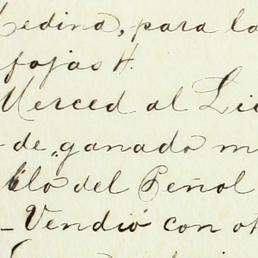 edina, para la
fojas H.
Merced al Li
de ganado m
llo del Peñol
Vendió con ot